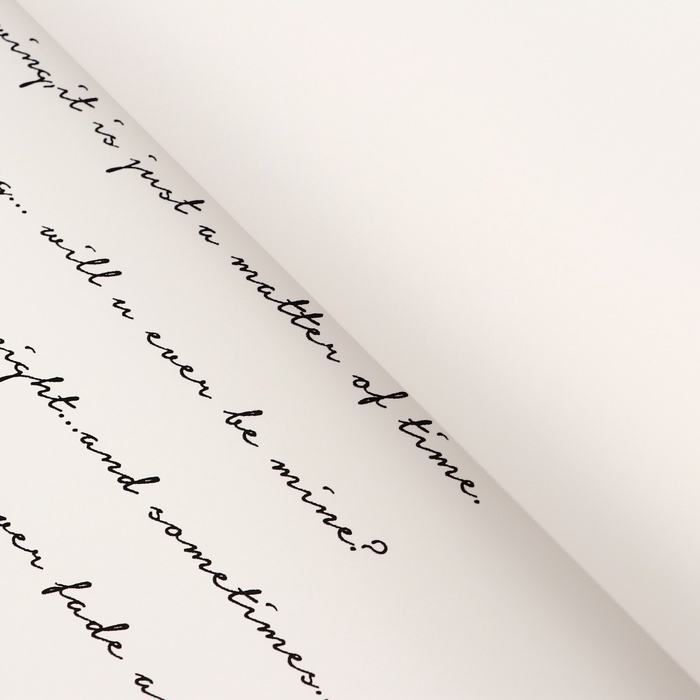 it is just a matter of time.
... will u ever be mine?
...and sometimes.
fade a